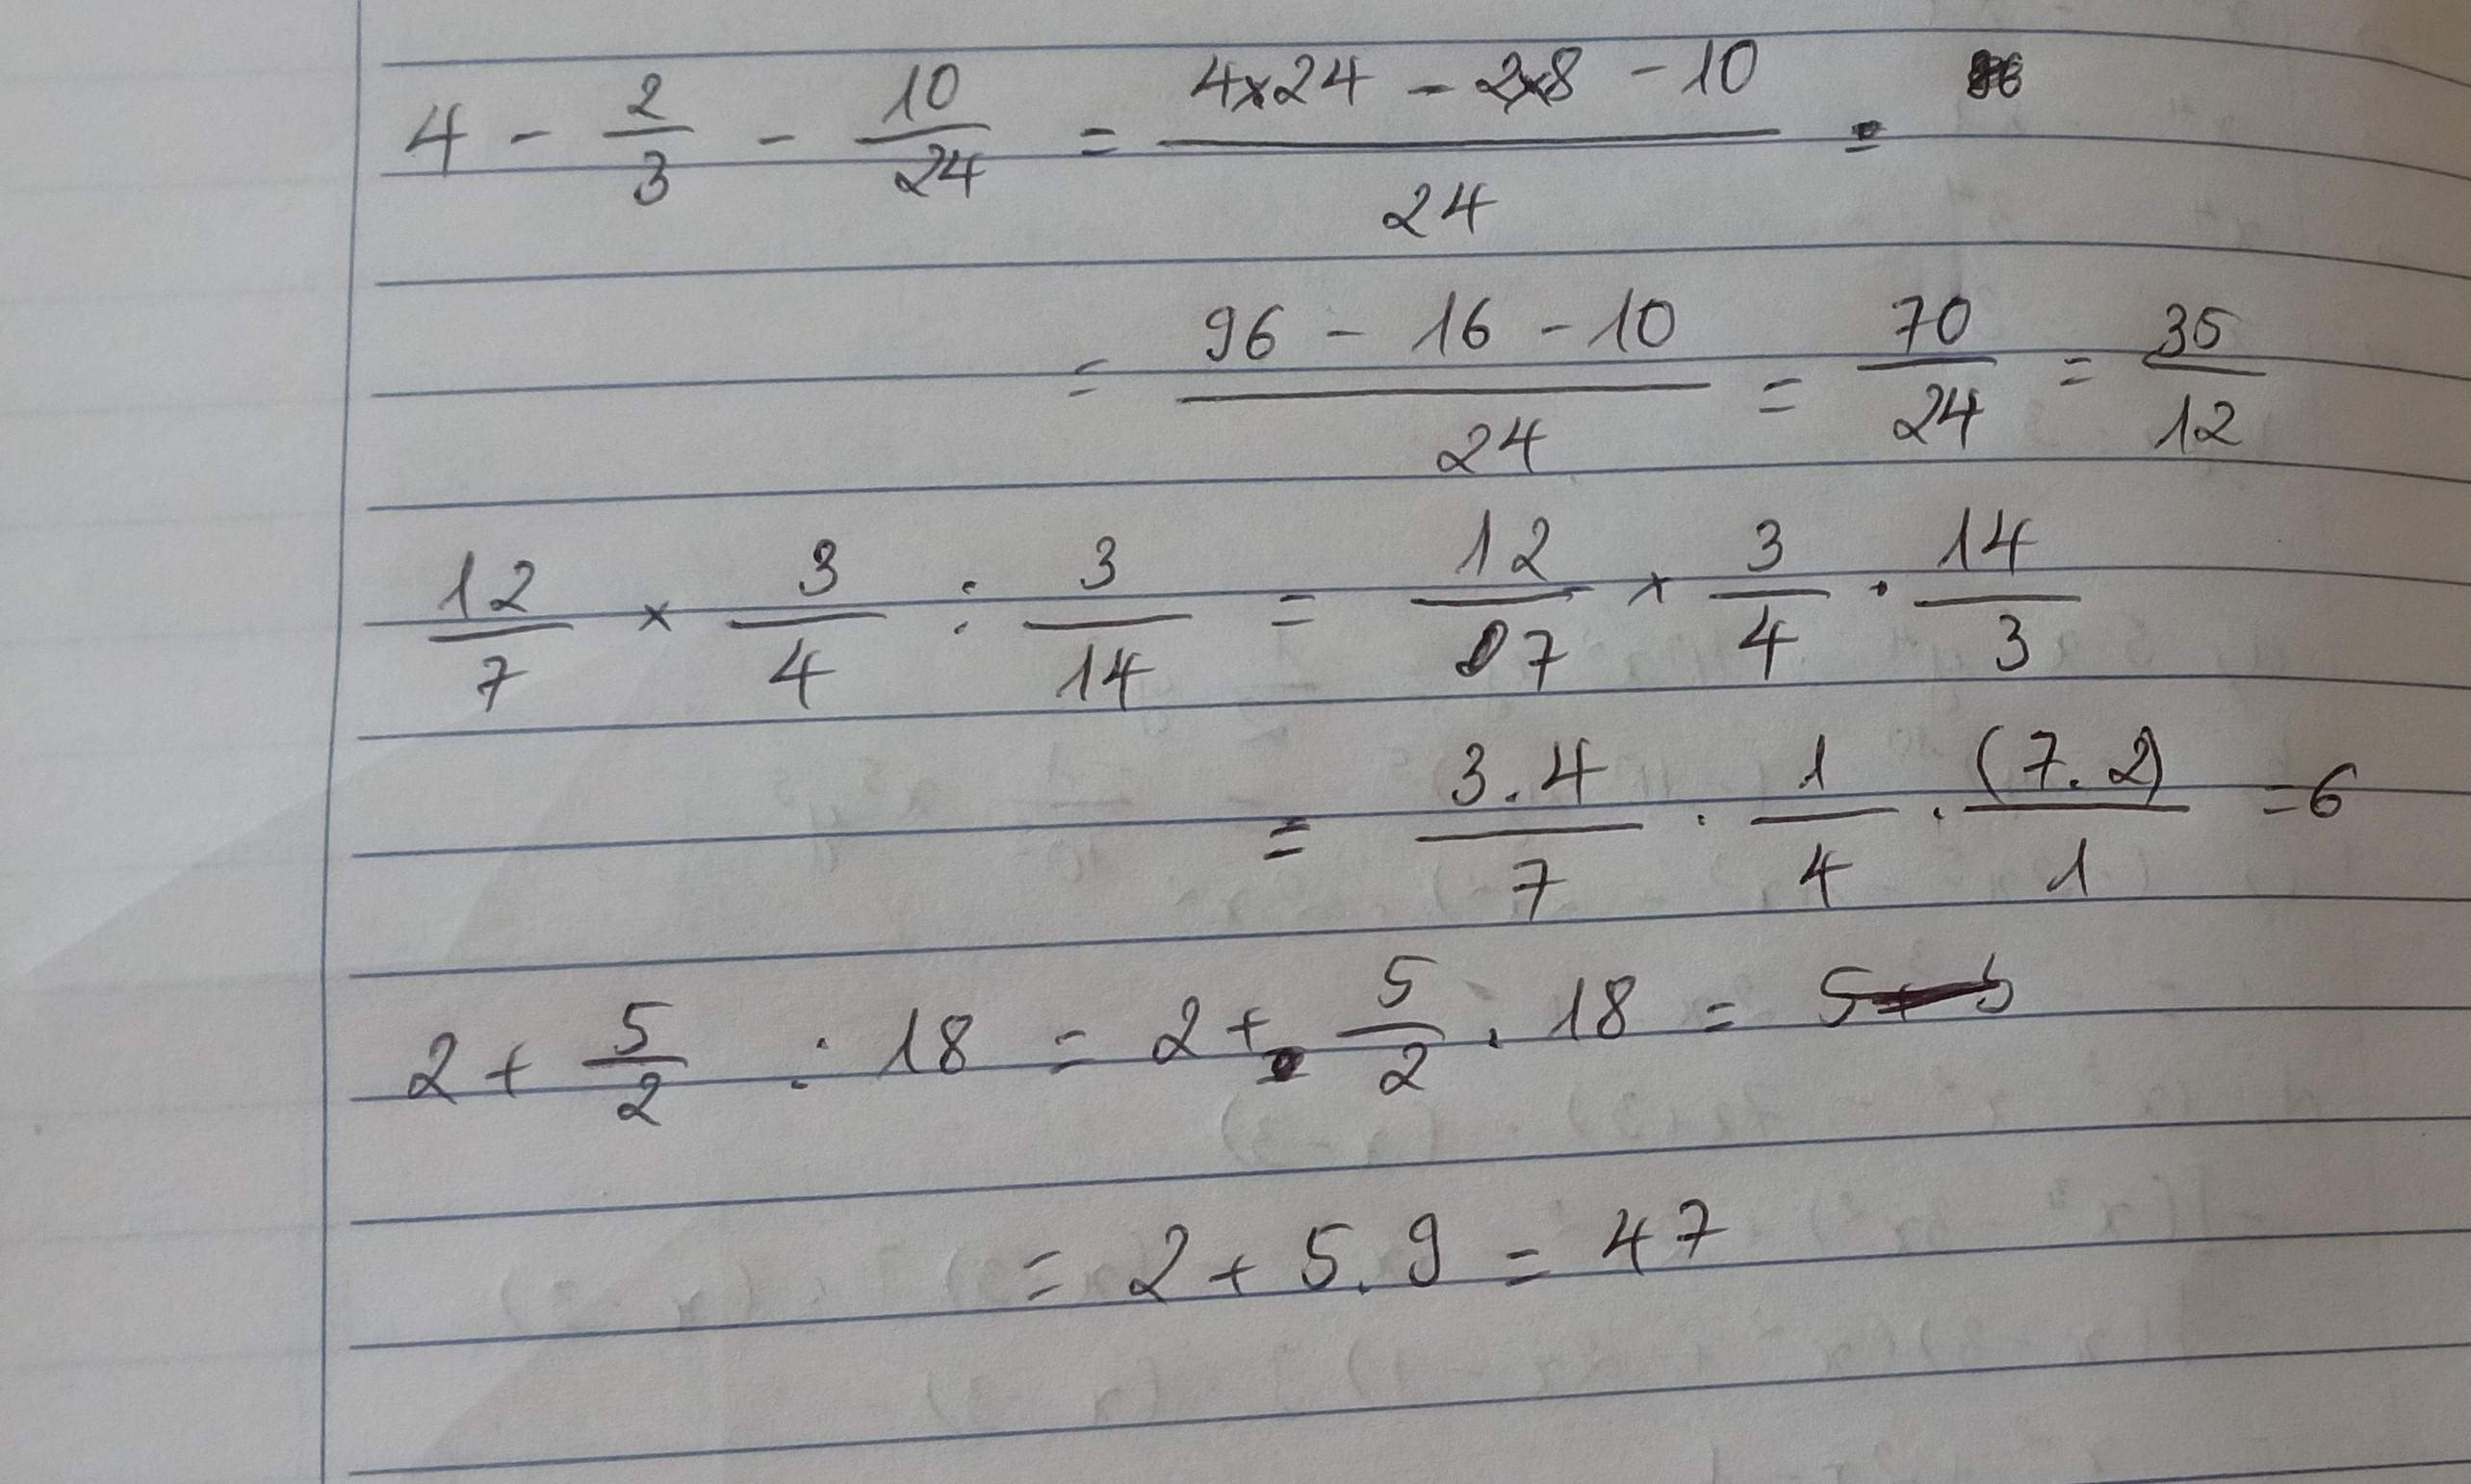 4 - 2/3 - 10/24 = (4x24 - 2x8 - 10)/24 =
= (96 - 16 - 10)/24 = 70/24 = 35/12
12/7 x 3/4 : 3/14 = 12/7 x 3/4 . 14/3
= 3.4/7 . 1/4 . (7.2)/1 = 6
2 + 5/2 : 18 = 2 + 5/2 . 18 =
= 2 + 5.9 = 47